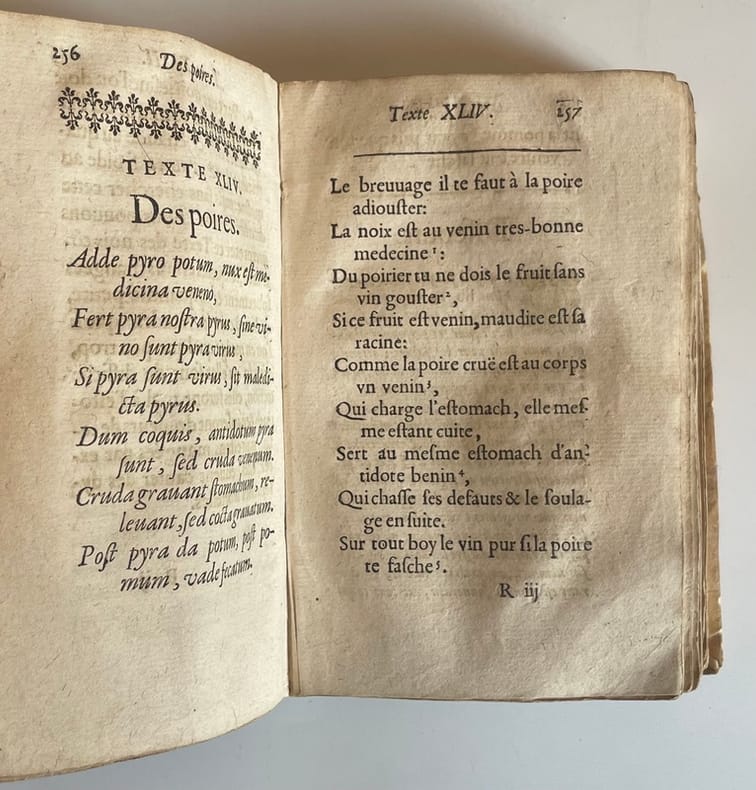 256
Des poires.
TEXTE XLIV.
Des poires.
Adde pyro potum, nux est me-
dicina veneno,
Fert pyra nostra pyrus, sine vi-
no sunt pyra virus,
Si pyra sunt virus, sit maledi-
cta pyrus.
Dum coquis, antidotum pyra
sunt, sed cruda venenum.
Cruda grauant stomachum, re-
leuant, sed cocta grauatum.
Post pyra da potum, post po-
mum, vade fecatum.
Texte XLIV.
257
Le breuuage il te faut à la poire
adiouster:
La noix est au venin tres-bonne
medecine ¹:
Du poirier tu ne dois le fruit sans
vin gouster ²,
Si ce fruit est venin, maudite est sa
racine:
Comme la poire cruë est au corps
vn venin ³,
Qui charge l'estomach, elle mes-
me estant cuite,
Sert au mesme estomach d'an-
tidote benin ⁴,
Qui chasse ses defauts & le soula-
ge en suite.
Sur tout boy le vin pur si la poire
te fasche ⁵.
R iij